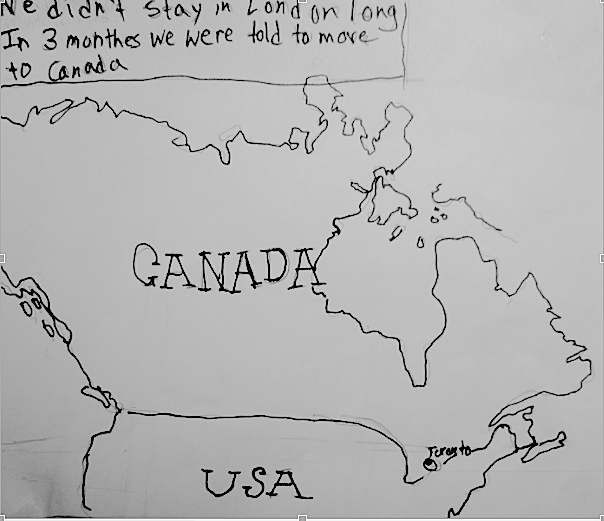 We didn't stay in London long
In 3 monthes we were told to move
to Canada
CANADA
Toronto
USA